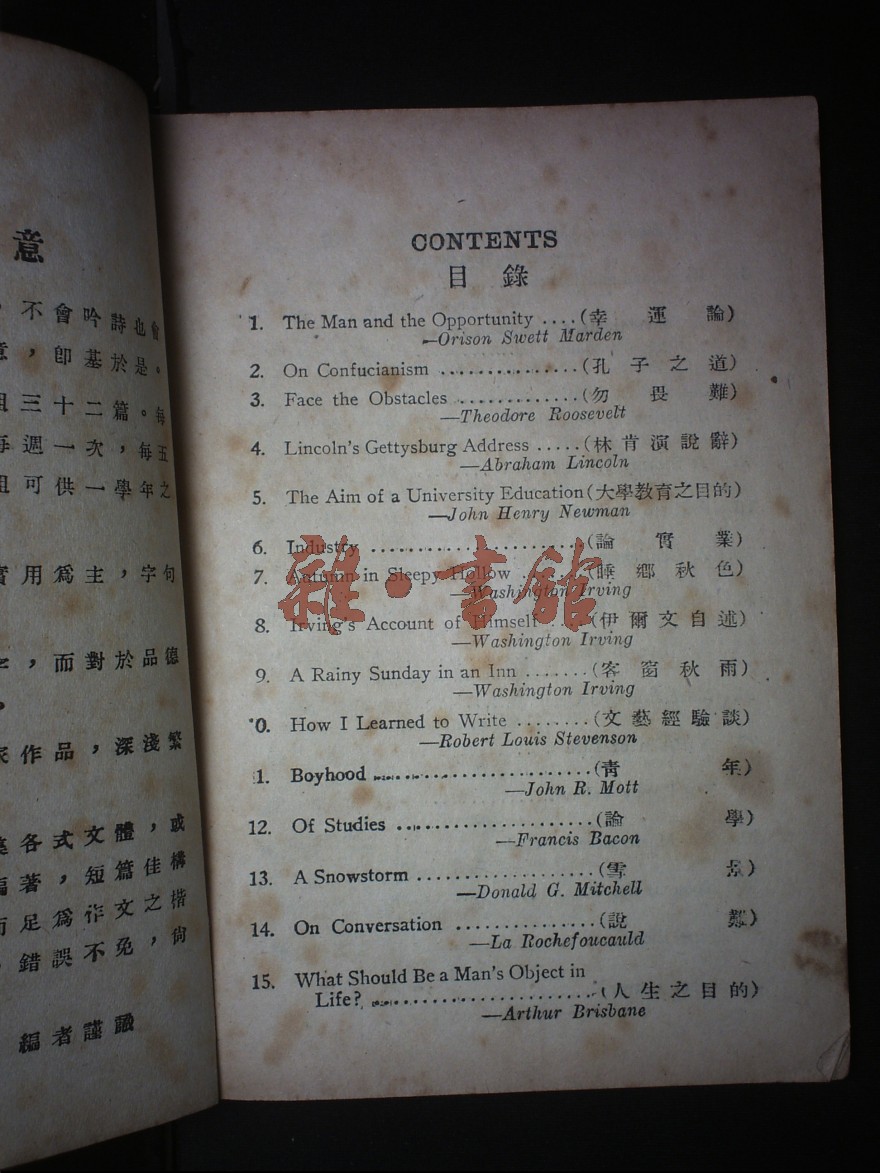 意
不會吟詩也會
意，卽基於是。
組三十二篇。每
每週一次，每五
組可供一學年之
實用爲主，字句
而對於品德
家作品，深淺繁
各式文體，或
編著，短篇佳構
而足爲作文之楷
錯誤不免，尙
編者謹識
CONTENTS
目錄
1. The Man and the Opportunity ....(幸運論)
—Orison Swett Marden
2. On Confucianism ................(孔子之道)
3. Face the Obstacles ..............(勿畏難)
—Theodore Roosevelt
4. Lincoln's Gettysburg Address .....(林肯演說辭)
—Abraham Lincoln
5. The Aim of a University Education(大學教育之目的)
—John Henry Newman
6. Industry ........................(論實業)
7. Autumn in Sleepy Hollow ........(睡鄉秋色)
—Washington Irving
8. Irving's Account of Himself ......(伊爾文自述)
—Washington Irving
9. A Rainy Sunday in an Inn ........(客窗秋雨)
—Washington Irving
0. How I Learned to Write ........(文藝經驗談)
—Robert Louis Stevenson
1. Boyhood ........................(靑年)
—John R. Mott
12. Of Studies ......................(論學)
—Francis Bacon
13. A Snowstorm ..................(雪景)
—Donald G. Mitchell
14. On Conversation ..............(說難)
—La Rochefoucauld
15. What Should Be a Man's Object in
Life? ........................(人生之目的)
—Arthur Brisbane
雜·書館